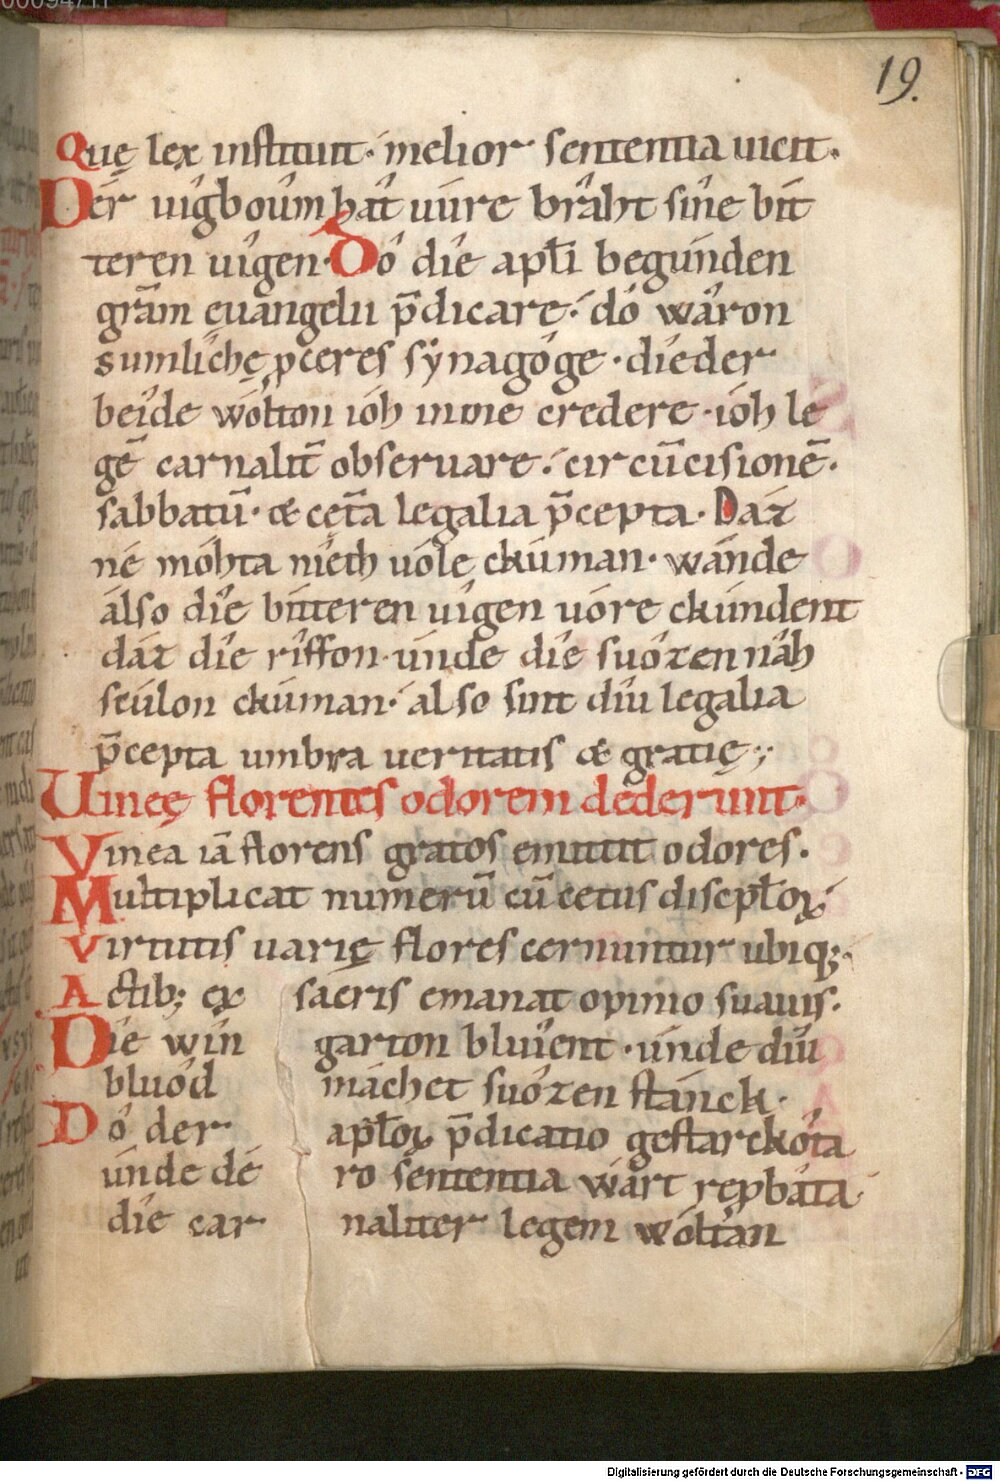 19.
Quę lex instituit· melior sententia uicit·
Dér uîgboúm hât uúre brâht sîne bit
teren uîgen· Dô dîe apłi begúnden
grãm euángelii p̄dicare· dó wâron
súmlîche pceres sẏnagóge· dîeder
beîde wólton ióh in me credere· ióh le
gẽ carnalit̃ obseruare· circũcisionẽ·
sabbatũ· & cęt̃a legalia p̄cepta· Daz
né móhta nîeth uóle ckúman· wánde
álso dîe bítteren uîgen uóre ckúndent
dáz dîe rîffon· únde dîe suózen nâh
scúlon ckúman· also sint dîu legalia
p̄cepta umbra ueritatis & gratię;
Uineę florentes odorem dederunt·
Vinea iã florens gratos emittit odores·
Multiplicat numerũ cũ cetus discipłoꝝ·
Virtutis uarię flores cernuntur ubiq;·
Actib; ex sacris emanat opinio suauis·
Dîe wîn garton bluîent· únde díu
bluód máchet suózen stánck·
Dô der apłoꝝ p̄dicatio gestarckóta
únde dé ro séntentia wârt reꝓbáta
dîe car naliter legem wóltan
Digitalisierung gefördert durch die Deutsche Forschungsgemeinschaft - DFG